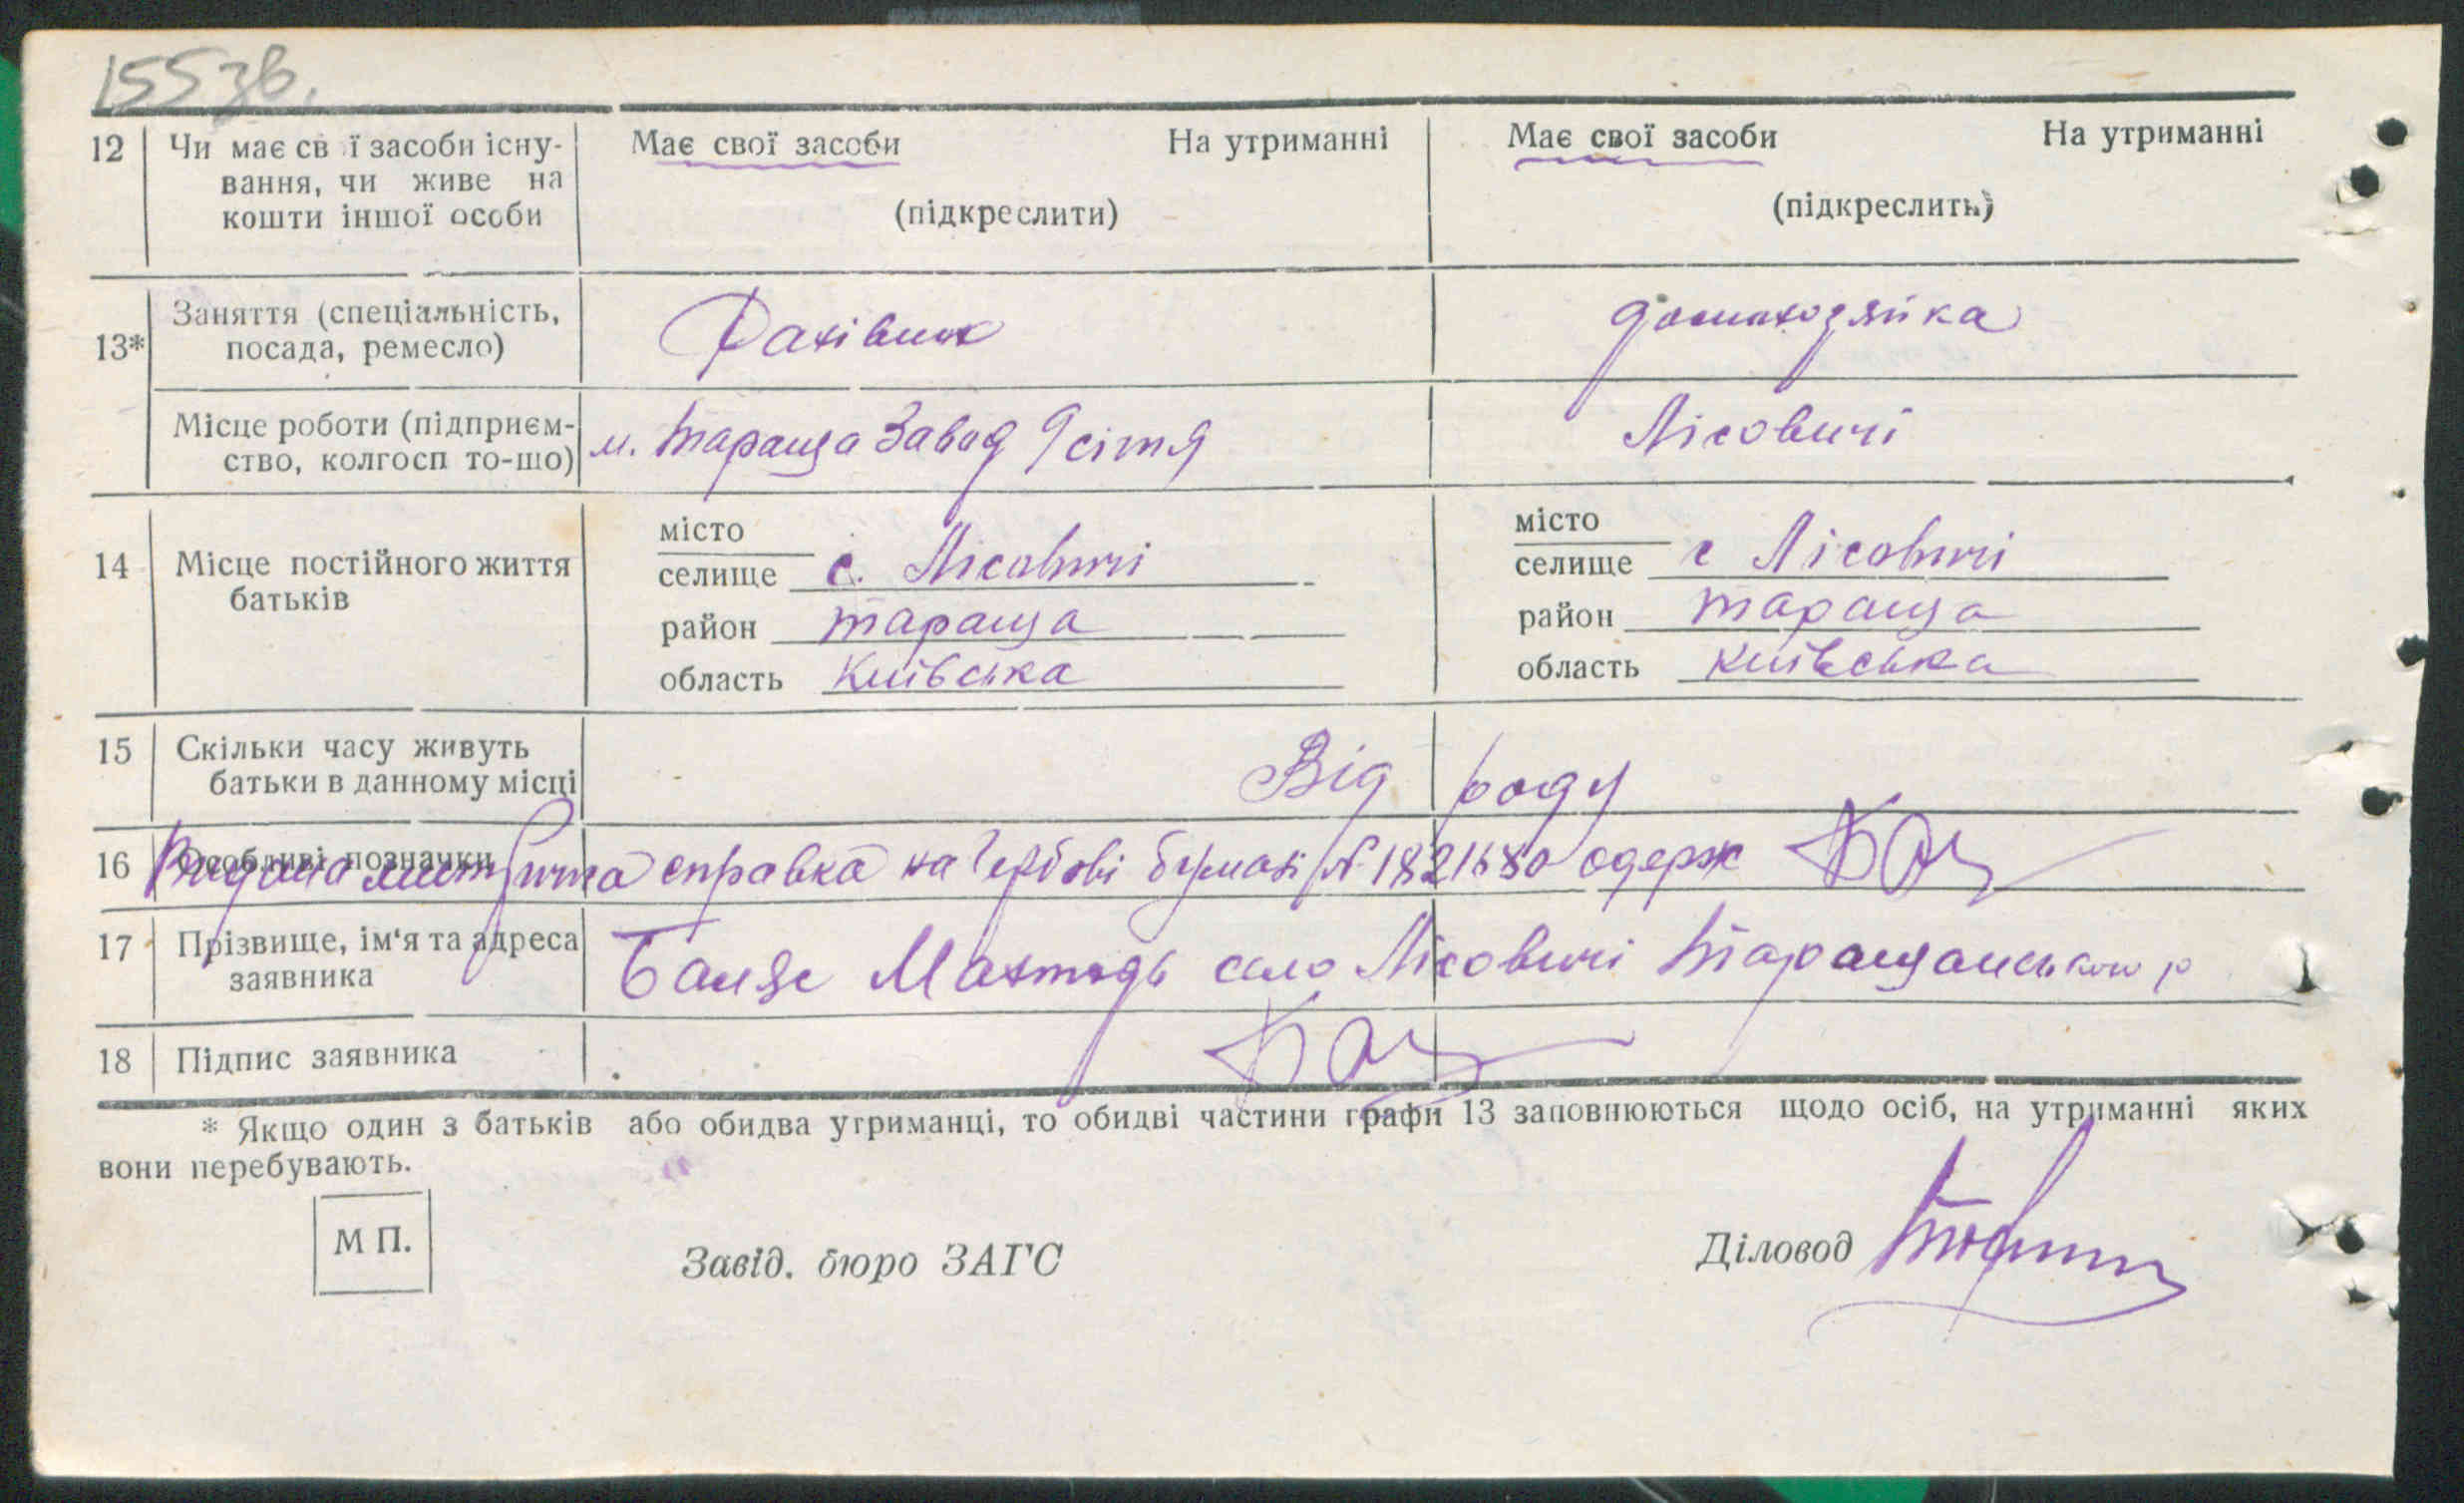 155зв.
12 Чи має св ї засоби існу- Має свої засоби На утриманні Має свої засоби На утриманні
вання, чи живе на
кошти іншої особи (підкреслити) (підкреслить)
13* Заняття (спеціальність, Рахівник домохозяйка
посада, ремесло)
Місце роботи (підприєм- м. Тараща Завод Лісовичі
ство, колгосп то-що)
14 Місце постійного життя батьків
місто
селище с. Лісовичі
район Тараща
область Київська
місто
селище с Лісовичі
район Тараща
область Київська
15 Скільки часу живуть Від роду
батьки в данному місці
16 Особливі позначки Видана справка на Гербові бумазі № 1821680 одерж
17 Прізвище, ім‘я та адреса село Лісовичі Таращанського р
заявника
18 Підпис заявника
* Якщо один з батьків або обидва утриманці, то обидві частини графи 13 заповнюються щодо осіб, на утриманні яких
вони перебувають.
М П.
Завід. бюро ЗАГС
Діловод